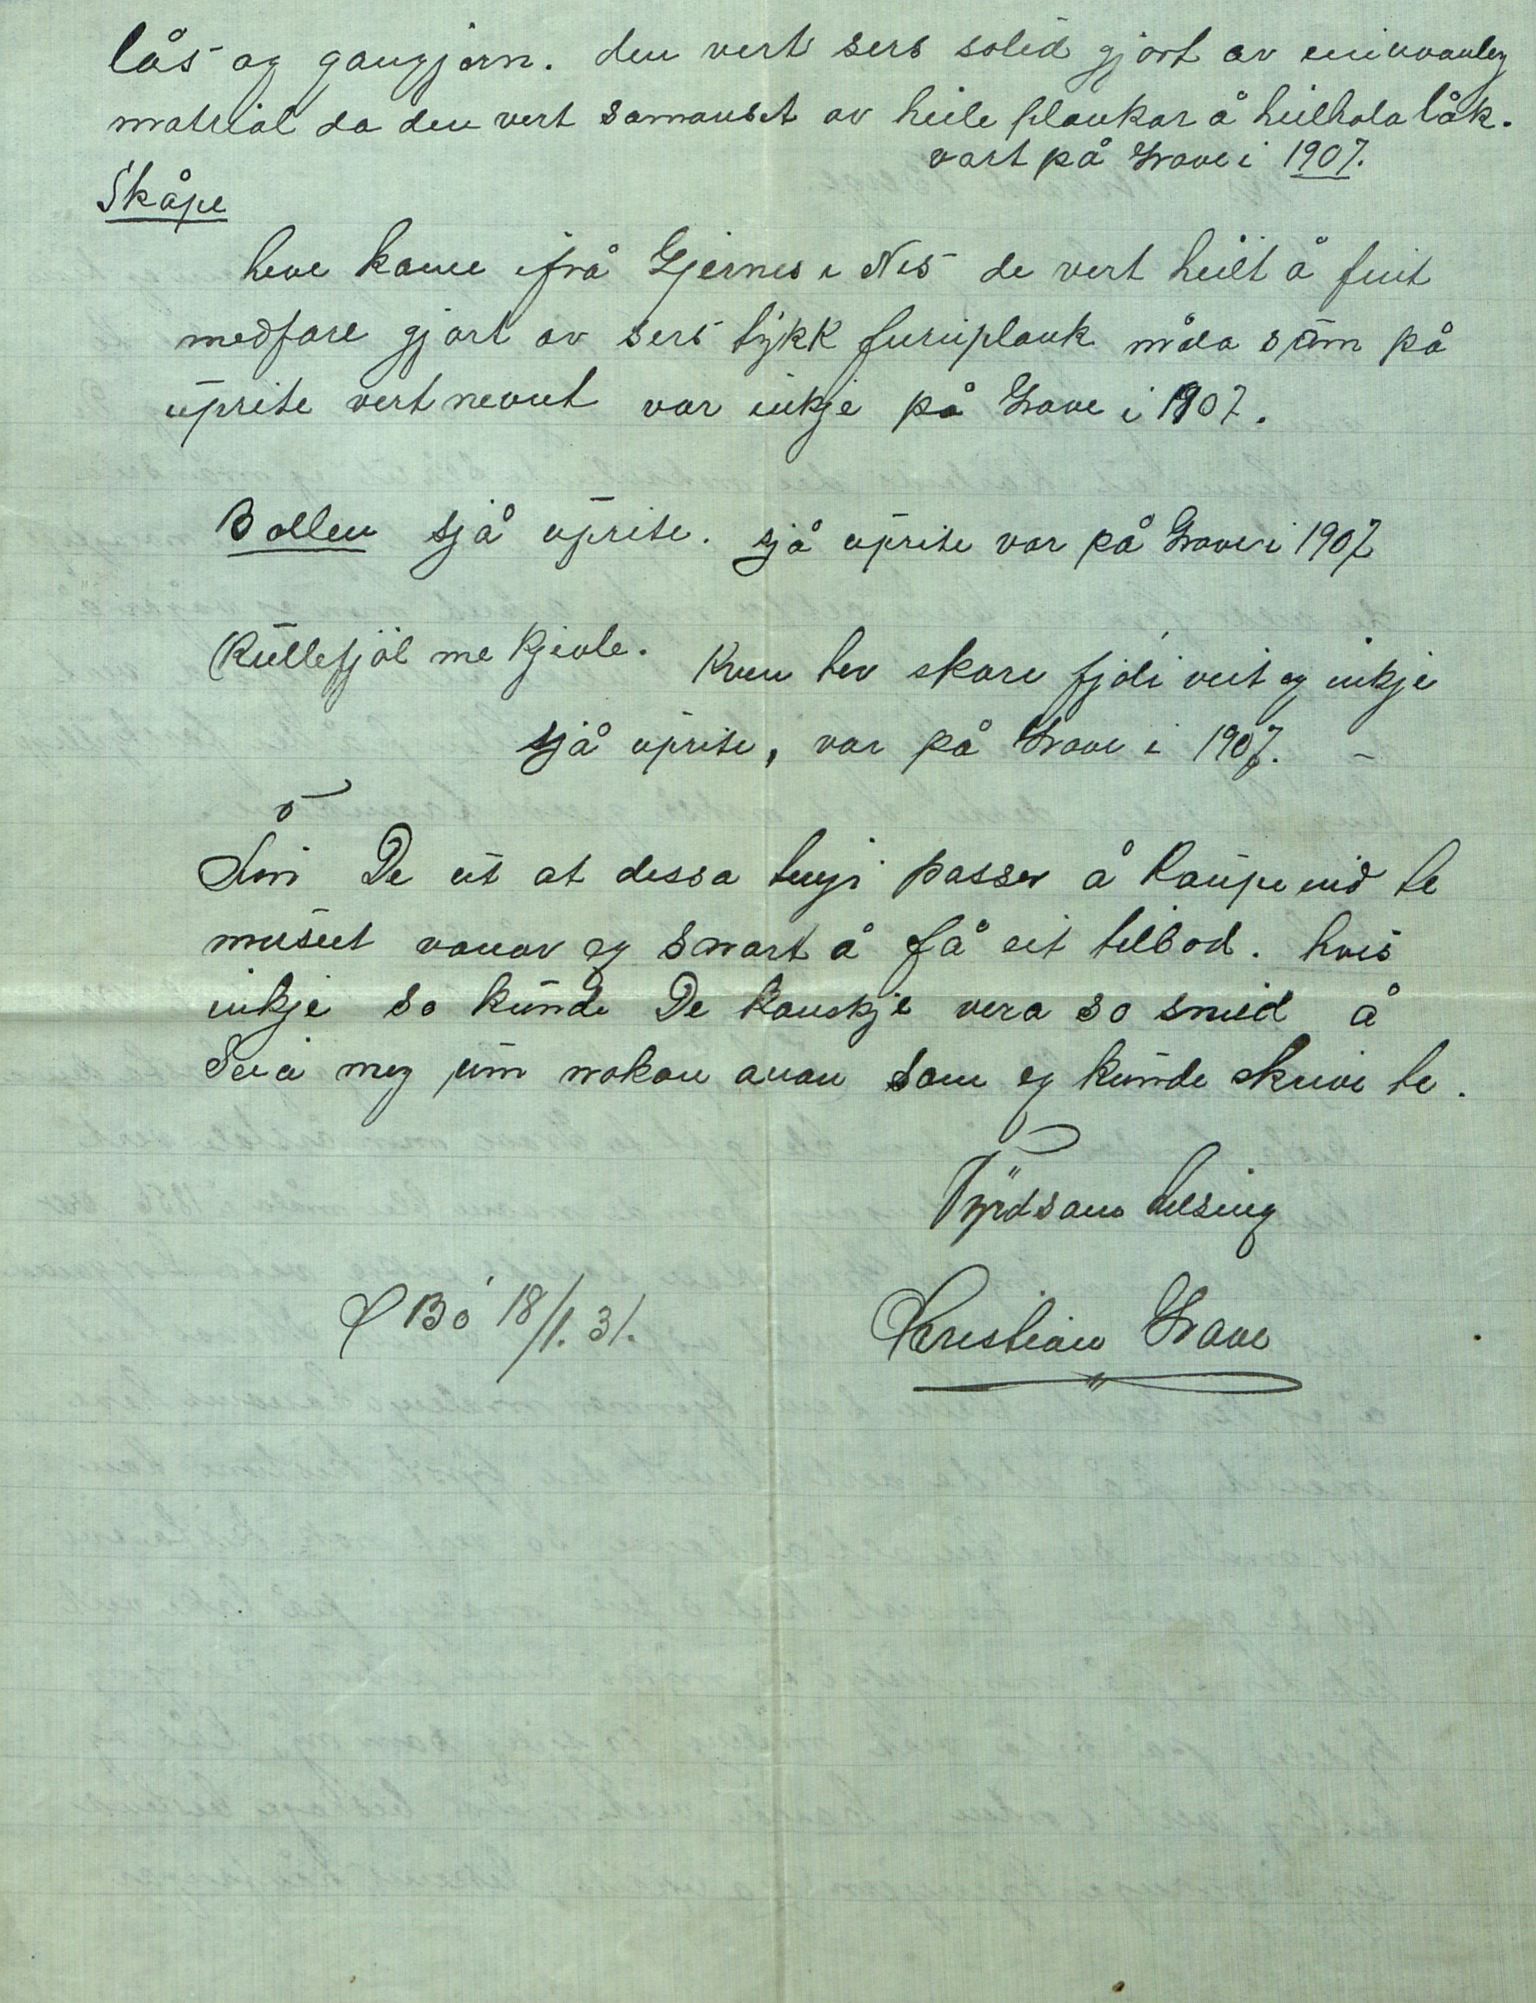 lås og gangjarn. den vert sers solid gjort av ein uvanleg
matrial da den vert samanset av heile plankar å heilhola låk.
vart på Grave i 1907.
Skåpe
heve kome ifrå Gjernes i Nes de vert heilt å fint
medfare gjort av sers tykk furuplank måla som på
uprite vert nevnt var inkje på Grave i 1907.
Bollen sjå uprite. sjå uprite var på Grave i 1907
Kullefjøl me kjevle. Kven hev skore fjøli veit eg inkje
sjå uprite, var på Grave i 1907. –
De ut at dessa tingi passer å kaupe inŏ te
museet vonar eg snart å få eit tilbod. hvis
inkje so kunde De kanskje vera so snild å
Seia meg um nokon anan som eg kunde skrive te.
Vyrdsam helsing
Bö 18/1. 31.
Kristian Grave